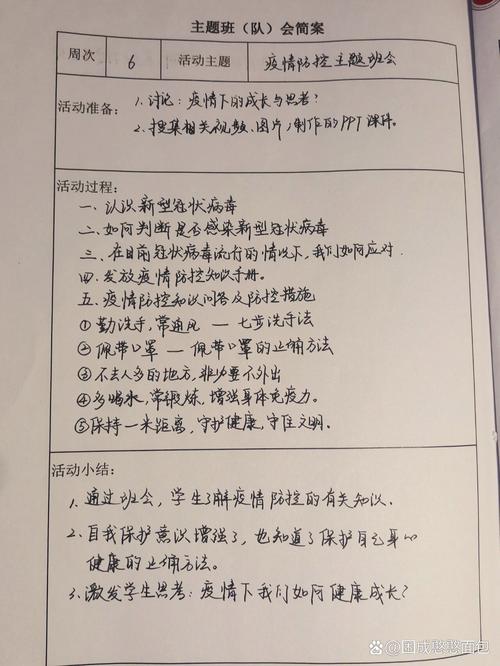 主题班（队）会简案
周次 6 活动主题 疫情防控主题班会
活动准备： 1. 讨论：疫情下的成长与思考？
2. 搜集相关视频、图片，制作的PPT课件。
活动过程：
一、认识新型冠状病毒
二、如何判断是否感染新型冠状病毒
三、在目前冠状病毒流行的情况下，我们如何应对.
四、发放疫情防控知识手册。
五、疫情防控知识问答及防控措施
①勤洗手，常通风 — 七步洗手法
②佩带口罩 — 佩带口罩的正确方法
③不去人多的地方，非必要不外出
④多喝水，常锻炼，增强身体免疫力。
⑤保持一米距离，守护健康，守住文明。
活动小结：
1. 通过班会，学生了解疫情防控的有关知识.
2. 自我保护意识增强了，也知道了保护自己身心
健康的正确方法。
3. 激发学生思考：疫情下我们如何健康成长？
@困成憨憨面包